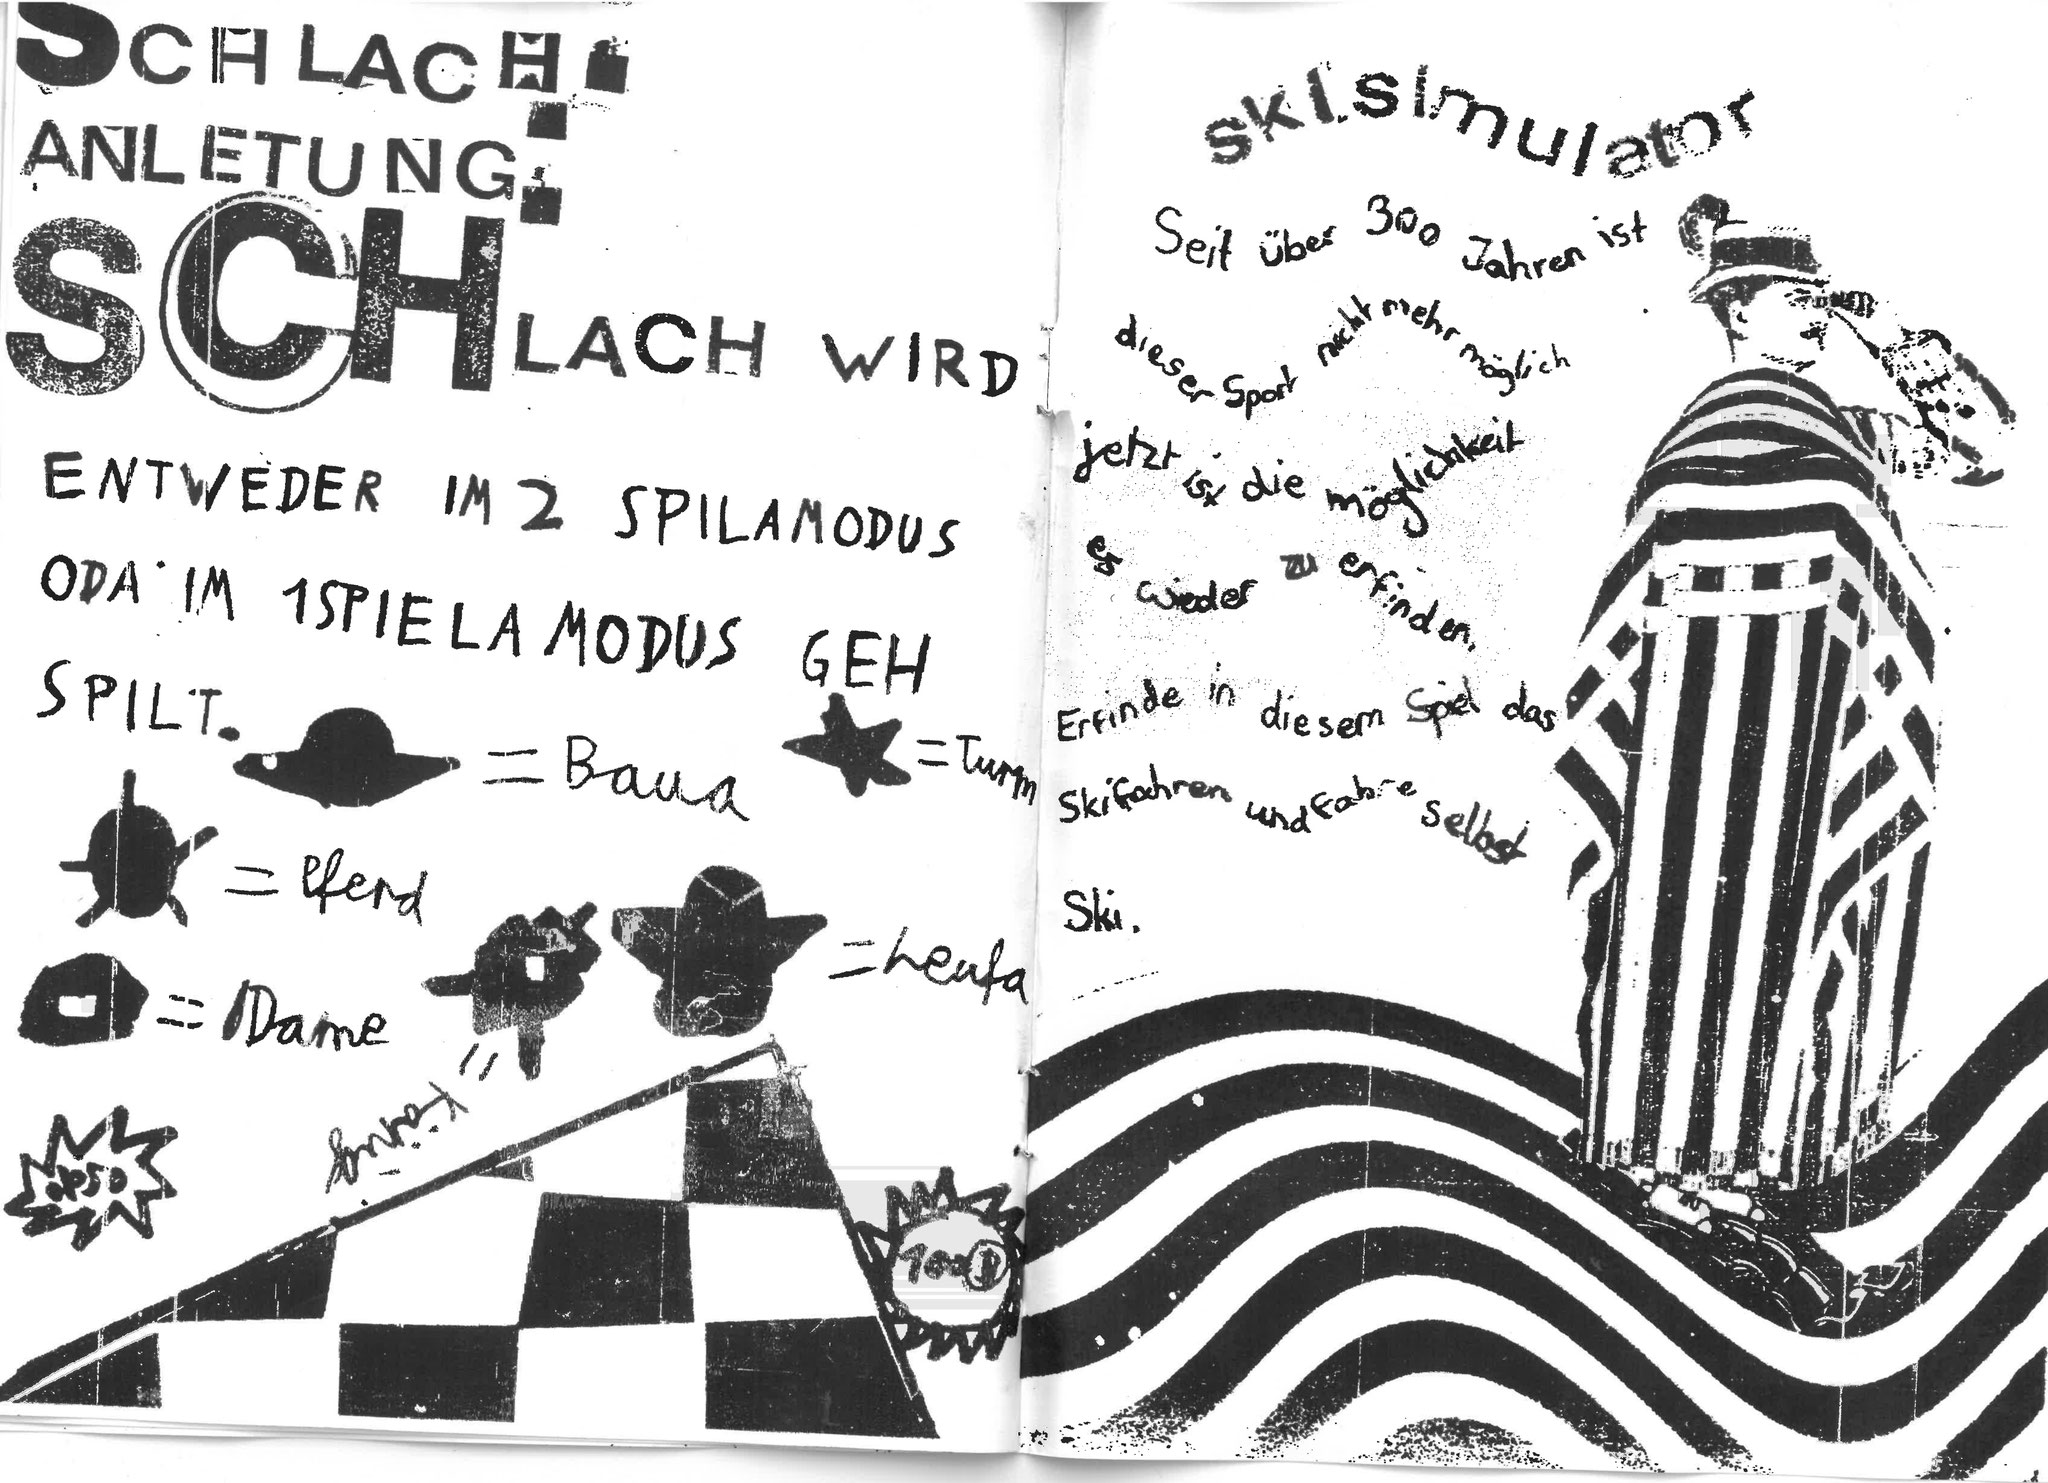 SCHLACH
ANLETUNG.
SCHLACH WIRD
ENTWEDER IM 2 SPILAMODUS
ODA IM 1SPIELAMODUS GEH
SPILT.
= Baua
= Turm
= Pferd
= Leufa
= Dame
= König
100
ski simulator
Seit über 300 Jahren ist
dieser Sport nicht mehr möglich
jetzt ist die möglichkeit
es wieder zu erfinden.
Erfinde in diesem Spiel das
Skifahren und Fahre selbst
Ski.